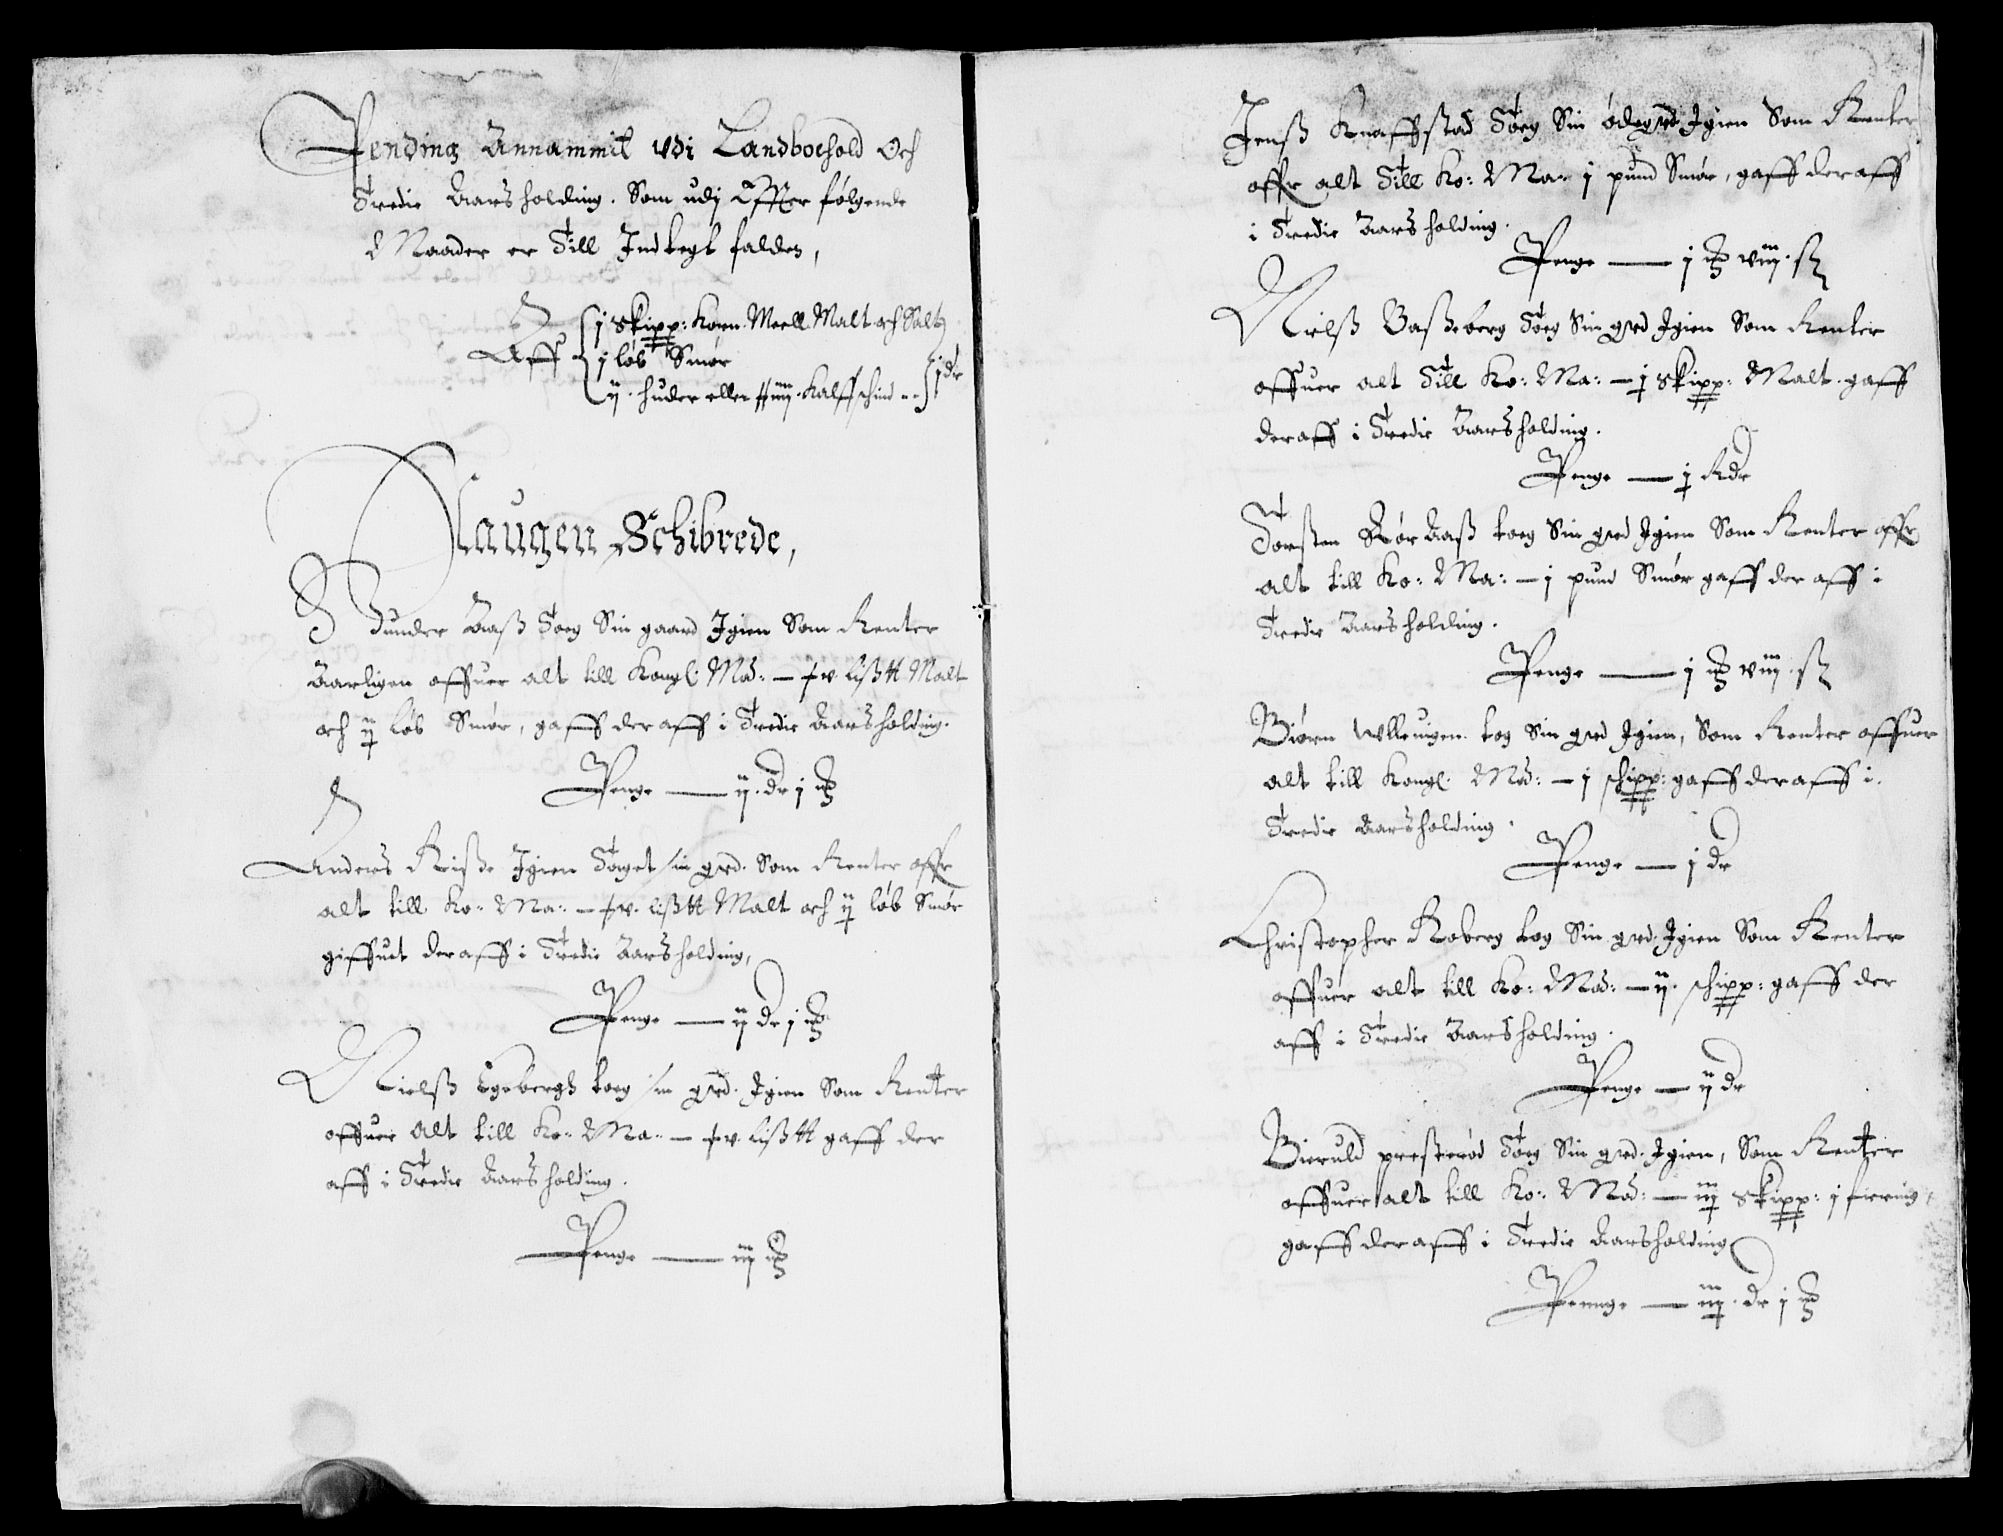 Pending Annammit udi Landboehold Och
Tredie Aars holding. Som udj Effter følgende
Maader er Till Indtegt falden,
Aff
j skipp: Korn. Meell. Malt och Salt
j løb Smør
ij. huder eller iiij. Kalffschind --
j dr
Haugen Schibrede,
Gunder Aaß Toeg Sin gaard Igien Som Renter
Aarligen offuer alt till Kongl: Ma: – v lißtt Malt
och ij løb Smør, gaff der aff i Tredie Aars holding.
Penge — ij. dr j
Anders Riße Igien Toget sin grd. Som Renter offr
alt till Ko: Ma: – v. lißtt Malt och ij løb Smør
giffuet der aff i Tredie Aars holding,
Penge — ij dr j
Nielß Egebergh toeg sin grd. Igien Som Renter
offuer alt till Ko: Ma: – v lißtt gaff der
aff i Tredie Aars holding.
Penge — iij
Jenß Knaffstad Toeg Sin ødegrd Igien Som Renter
offr alt Till Ko: Ma: j pund Smør, gaff der aff
i Tredie Aars holding.
Penge — j viij. s
Nielß Baßeberg Toeg Sin grd Igien Som Renter
offuer alt Till Ko: Ma: – j skipp: Malt. gaff
der aff i Tredie Aars holding.
Penge — j Rdr
Torsten Aaß toeg Sin grd Igien Som Renter offr
alt till Ko: Ma: – j pund Smør gaff der aff i
Tredie Aars holding.
Penge — j viij. s
Biørn Wlleuigen tog Sin grd Igien, Som Renter offuer
alt till Kongl: Ma: – j schipp: gaff der aff i.
Tredie Aars holding.
Penge — j dr
Christopher Roberg tog Sin grd. Igien Som Renter
offuer alt till Ko: Ma: – ij. schipp: gaff der
aff i Tredie Aars holding.
Penge — ij dr
Bieruld presterød Toeg Sin grd. Igien, Som Renter
offuer alt till Ko: Ma: — iij skipp: j fiering,
gaff der aff i Tredie Aars holding
Pennge — iij. dr j